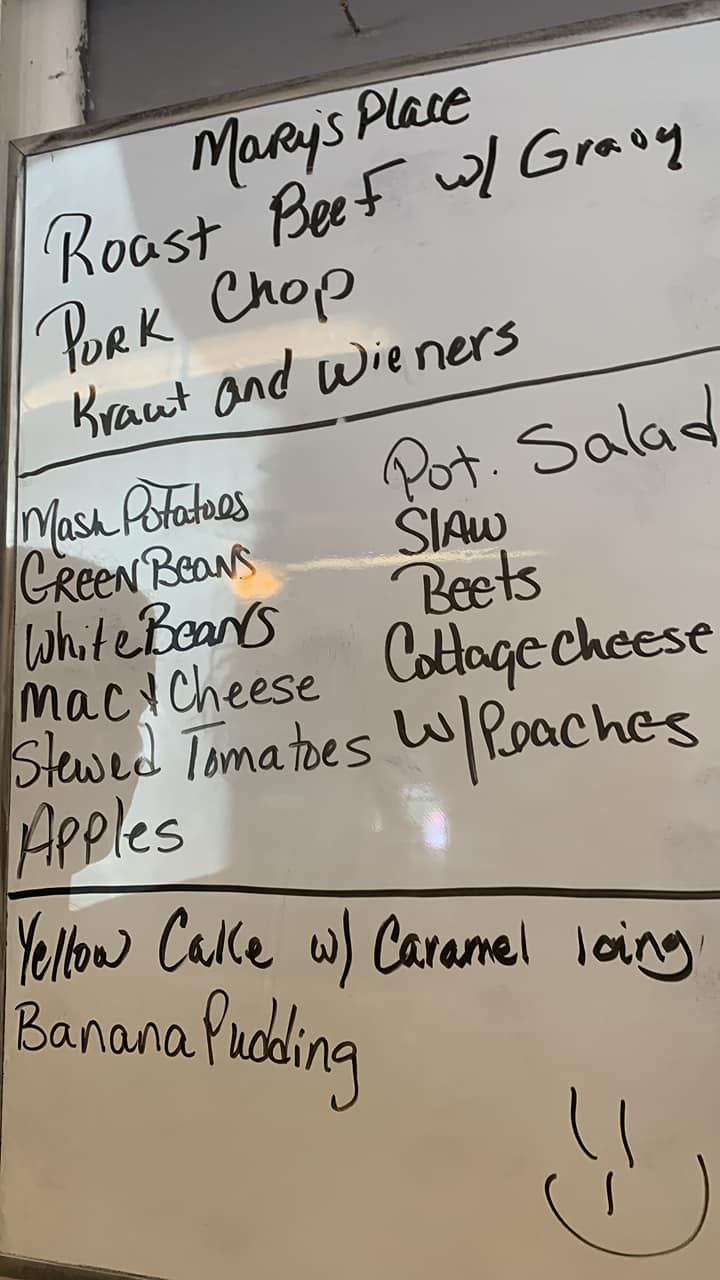 Mary's Place
Roast Beef w/ Gravy
Pork Chop
Kraut and Wieners
Mash Potatoes
Green Beans
White Beans
Mac & Cheese
Stewed Tomatoes
Apples
Pot. Salad
Slaw
Beets
Cottage cheese
w/ Peaches
Yellow Cake w/ Caramel Icing
Banana Pudding